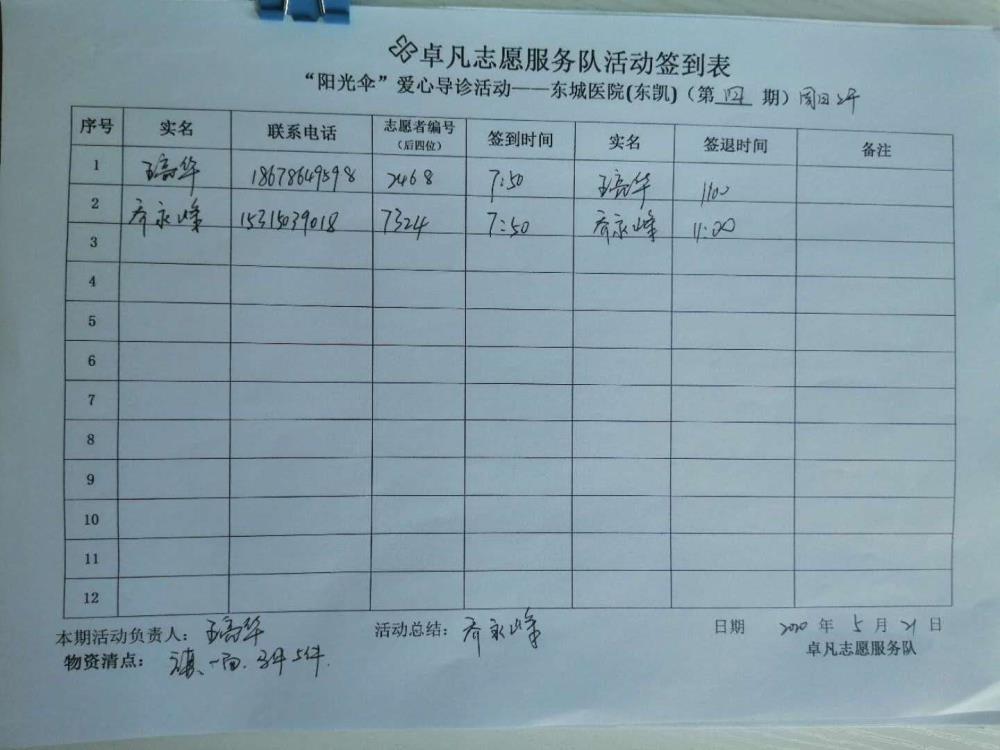 卓凡志愿服务队活动签到表
“阳光伞”爱心导诊活动——东城医院(东凯)（第四期）周日上午
序号 实名 联系电话 志愿者编号（后四位） 签到时间 实名 签退时间 备注
1 王高华 18678649598 2468 7:50 王高华 1100
2 乔永峰 15315039018 7324 7:50 乔永峰 11:00
3
4
5
6
7
8
9
10
11
12
本期活动负责人： 王高华 活动总结： 乔永峰 日期 2020 年 5 月 21 日
物资清点： 旗、一面、5件 卓凡志愿服务队